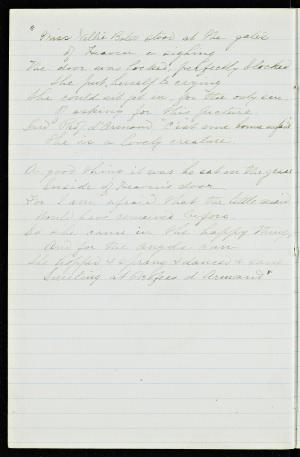 "Miss Nellie stood at the gates
of Heaven a sighing
The door was locked, perfectly blocked
She put herself to crying
She could sit in, for the only sin
Of asking for this picture
Said Prof. d'Armand "C'est une bonne
She is a lovely creature.
A good thing it was he sat on the
Inside of Heaven's door
For I am afraid that the little maid
Would have remained
So she came in the happy thing,
And for the angels ran
She hopped & sprang & danced & sang
Smiling at Profess d'Armand"